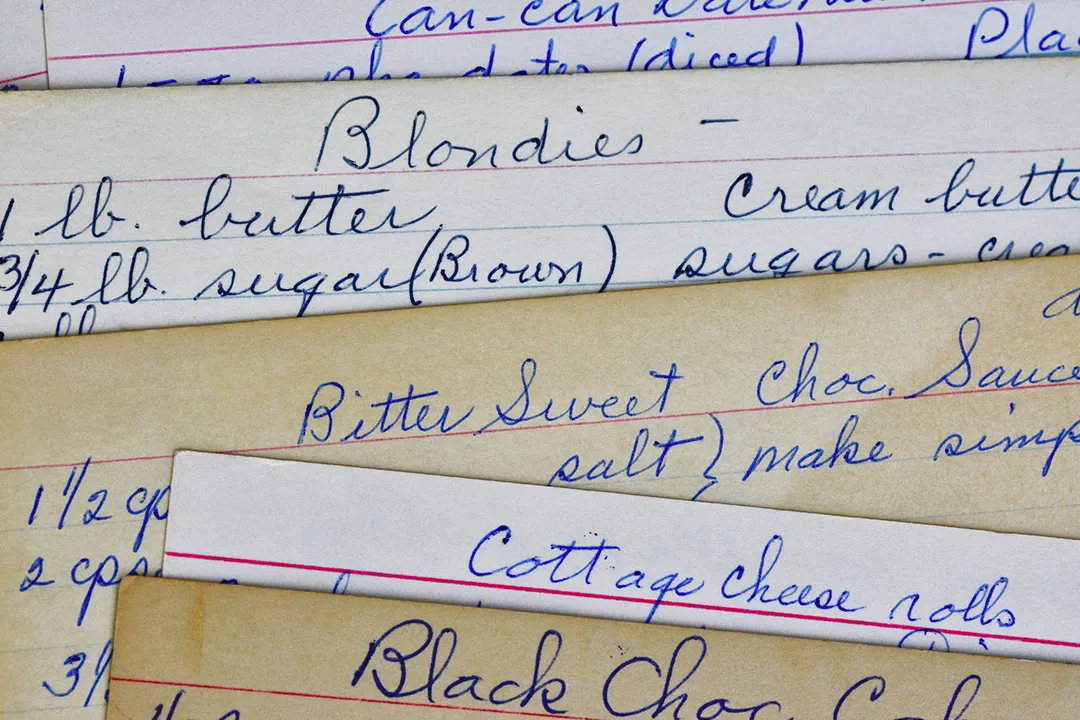 Can-can
dates (diced)
Blondies -
1 lb. butter Cream butte
3/4 lb. sugar (Brown) sugars -
Bitter Sweet Choc. Sauce
salt } make simp
1 1/2 cp
2 cps
Cottage cheese rolls
Black Choc.